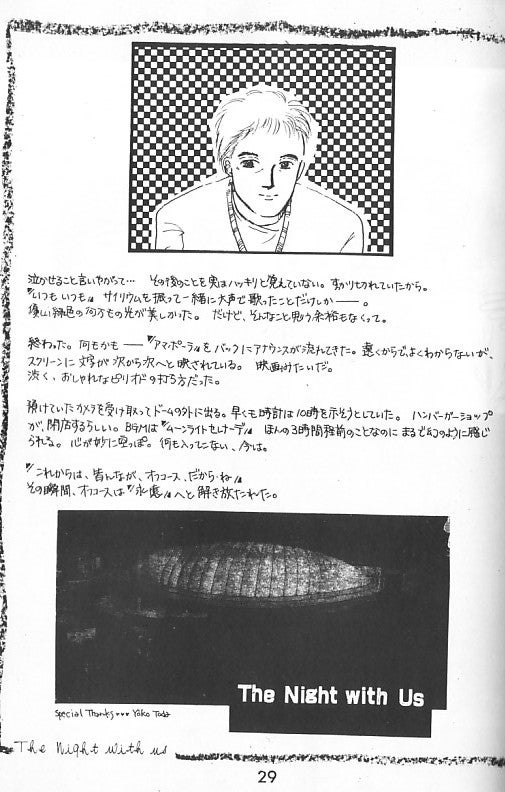 泣かせること言いやがって… その後のことを実はハッキリと覚えていない。すっかりもれていたから。
『いつもいつも』サイリウムを振って一緒に大声で歌ったことだけしか——。
優しい緑色の何万もの光が美しかった。だけど、そんなこと思う余裕もなくって。
終わった。何もかも——『アマポーラ』をバックにアナウンスが流れてきた。遠くからで、よくわからないが、
スクリーンに文字が次から次へと映されている。映画みたいだ。
渋く、おしゃれなピリオドの打ち方だった。
預けていたカメラを受け取ってドームの外に出る。早くも時計は10時を示そうとしていた。ハンバーガーショップ
が、閉店するらしい。BGMは『ムーンライトセレナーデ』ほんの3時間程前のことなのにまるで幻のように感じ
られる。心が妙に空っぽ。何も入ってこない、今は。
『これからは、皆んなが、オフコース、だから・ね』
その瞬間、オフコースは『永遠』へと解き放たれた。
The Night with Us
Special Thanks♥♥♥ Yoko Toda
The Night with us
29